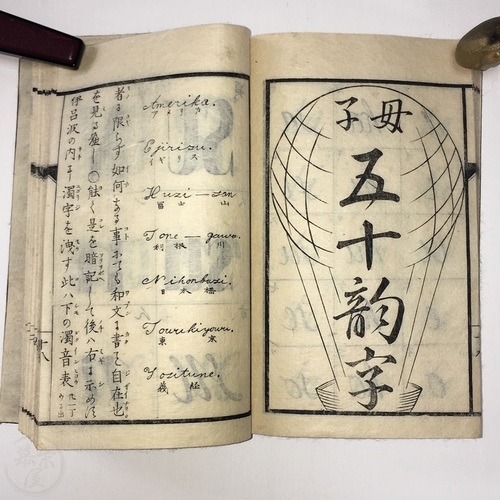 母子
五十韵字
Amerika.
アメリカ
Ejirisu.
イギリス
Huzi—san
富士山
Tone—gawa.
利根川
Nihonbasi.
日本橋
東京
Yositune.
義経
者に限らず如何なる事にても和文を書く自在也
を見る べし〇能く是を暗記して後ハ右に示め
伊呂波の内に濁字を洩す此ハ下の濁音表